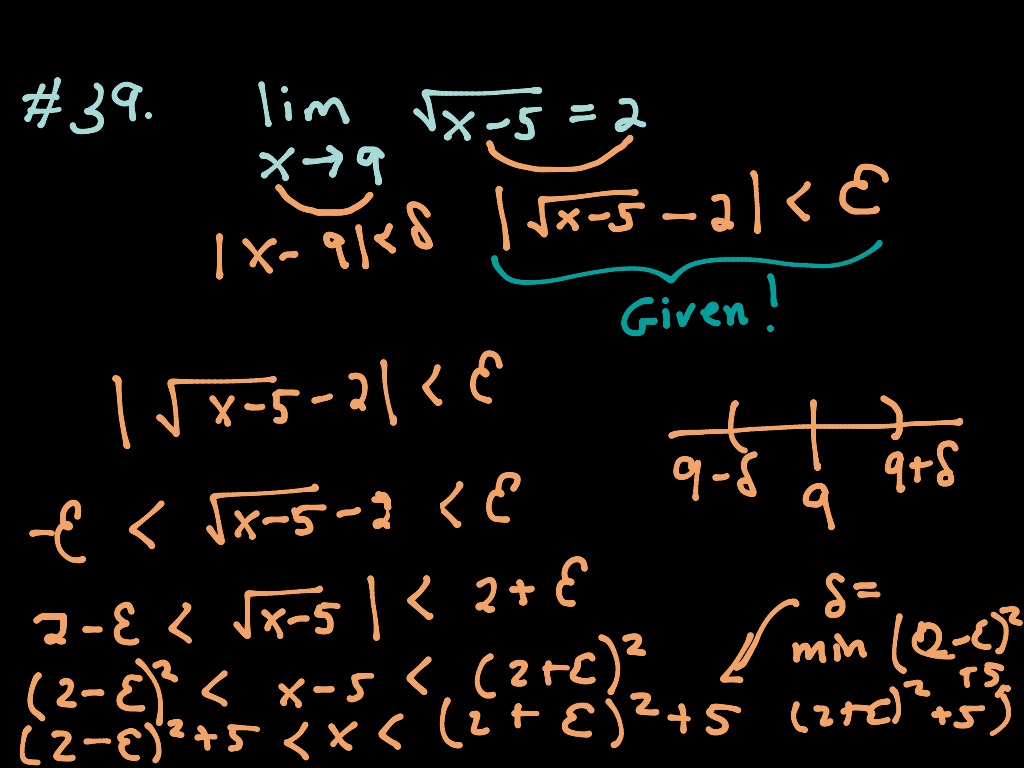 #39. lim √(x-5) = 2
x→9
|x-9|<δ |√(x-5) - 2| < ε
Given!
|√(x-5) - 2| < ε
9-δ 9 9+δ
-ε < √(x-5) - 2 < ε
2-ε < √(x-5) | < 2+ε
(2-ε)² < x-5 < (2+ε)²
(2-ε)²+5 < x < (2+ε)²+5
δ=
min ((2-ε)²
+5,
(2+ε)²+5)